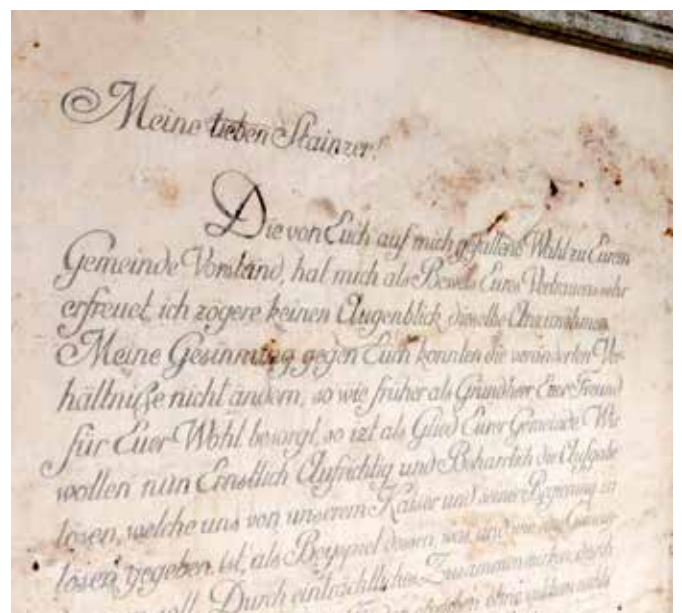 Meine lieben Stainzer!
Die von Euch auf mich gefallene Wahl zu Eurem
Gemeinde Vorstand, hat mich als Beweis Eures Vertrauens sehr
erfreuet, ich zögere keinen Augenblick dieselbe Anzunehmen.
Meine Gesinnung gegen Euch konnten die veränderten Ver-
hältniße nicht ändern, so wie früher als Grundherr Euer Freund
für Euer Wohl besorgt, so izt als Glied Eurer Gemeinde Wir
wollen nun Ernstlich Aufrichtig und Beharrlich die Aufgabe
lösen, welche uns von unserem Kaiser und seiner Regierung zu
lösen gegeben ist, als Beyspiel dessen, was, und wie
soll. Durch einträchtliches Zusammenwirken, durch
ohne